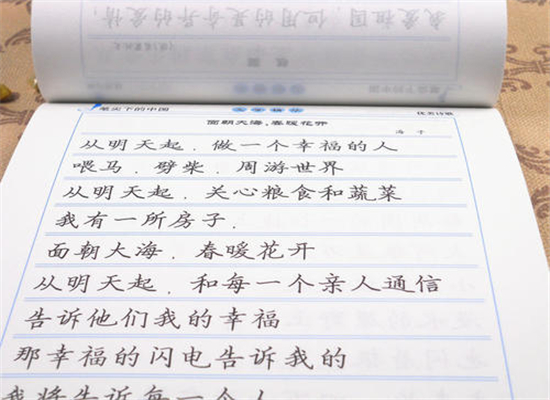 我爱祖国,但用的是奇异的爱情,
笔尖下的中国
优美诗歌
面朝大海,春暖花开
海子
从明天起,做一个幸福的人
喂马,劈柴,周游世界
从明天起,关心粮食和蔬菜
我有一所房子,
面朝大海,春暖花开
从明天起,和每一个亲人通信
告诉他们我的幸福
那幸福的闪电告诉我的
我将告诉每一个人